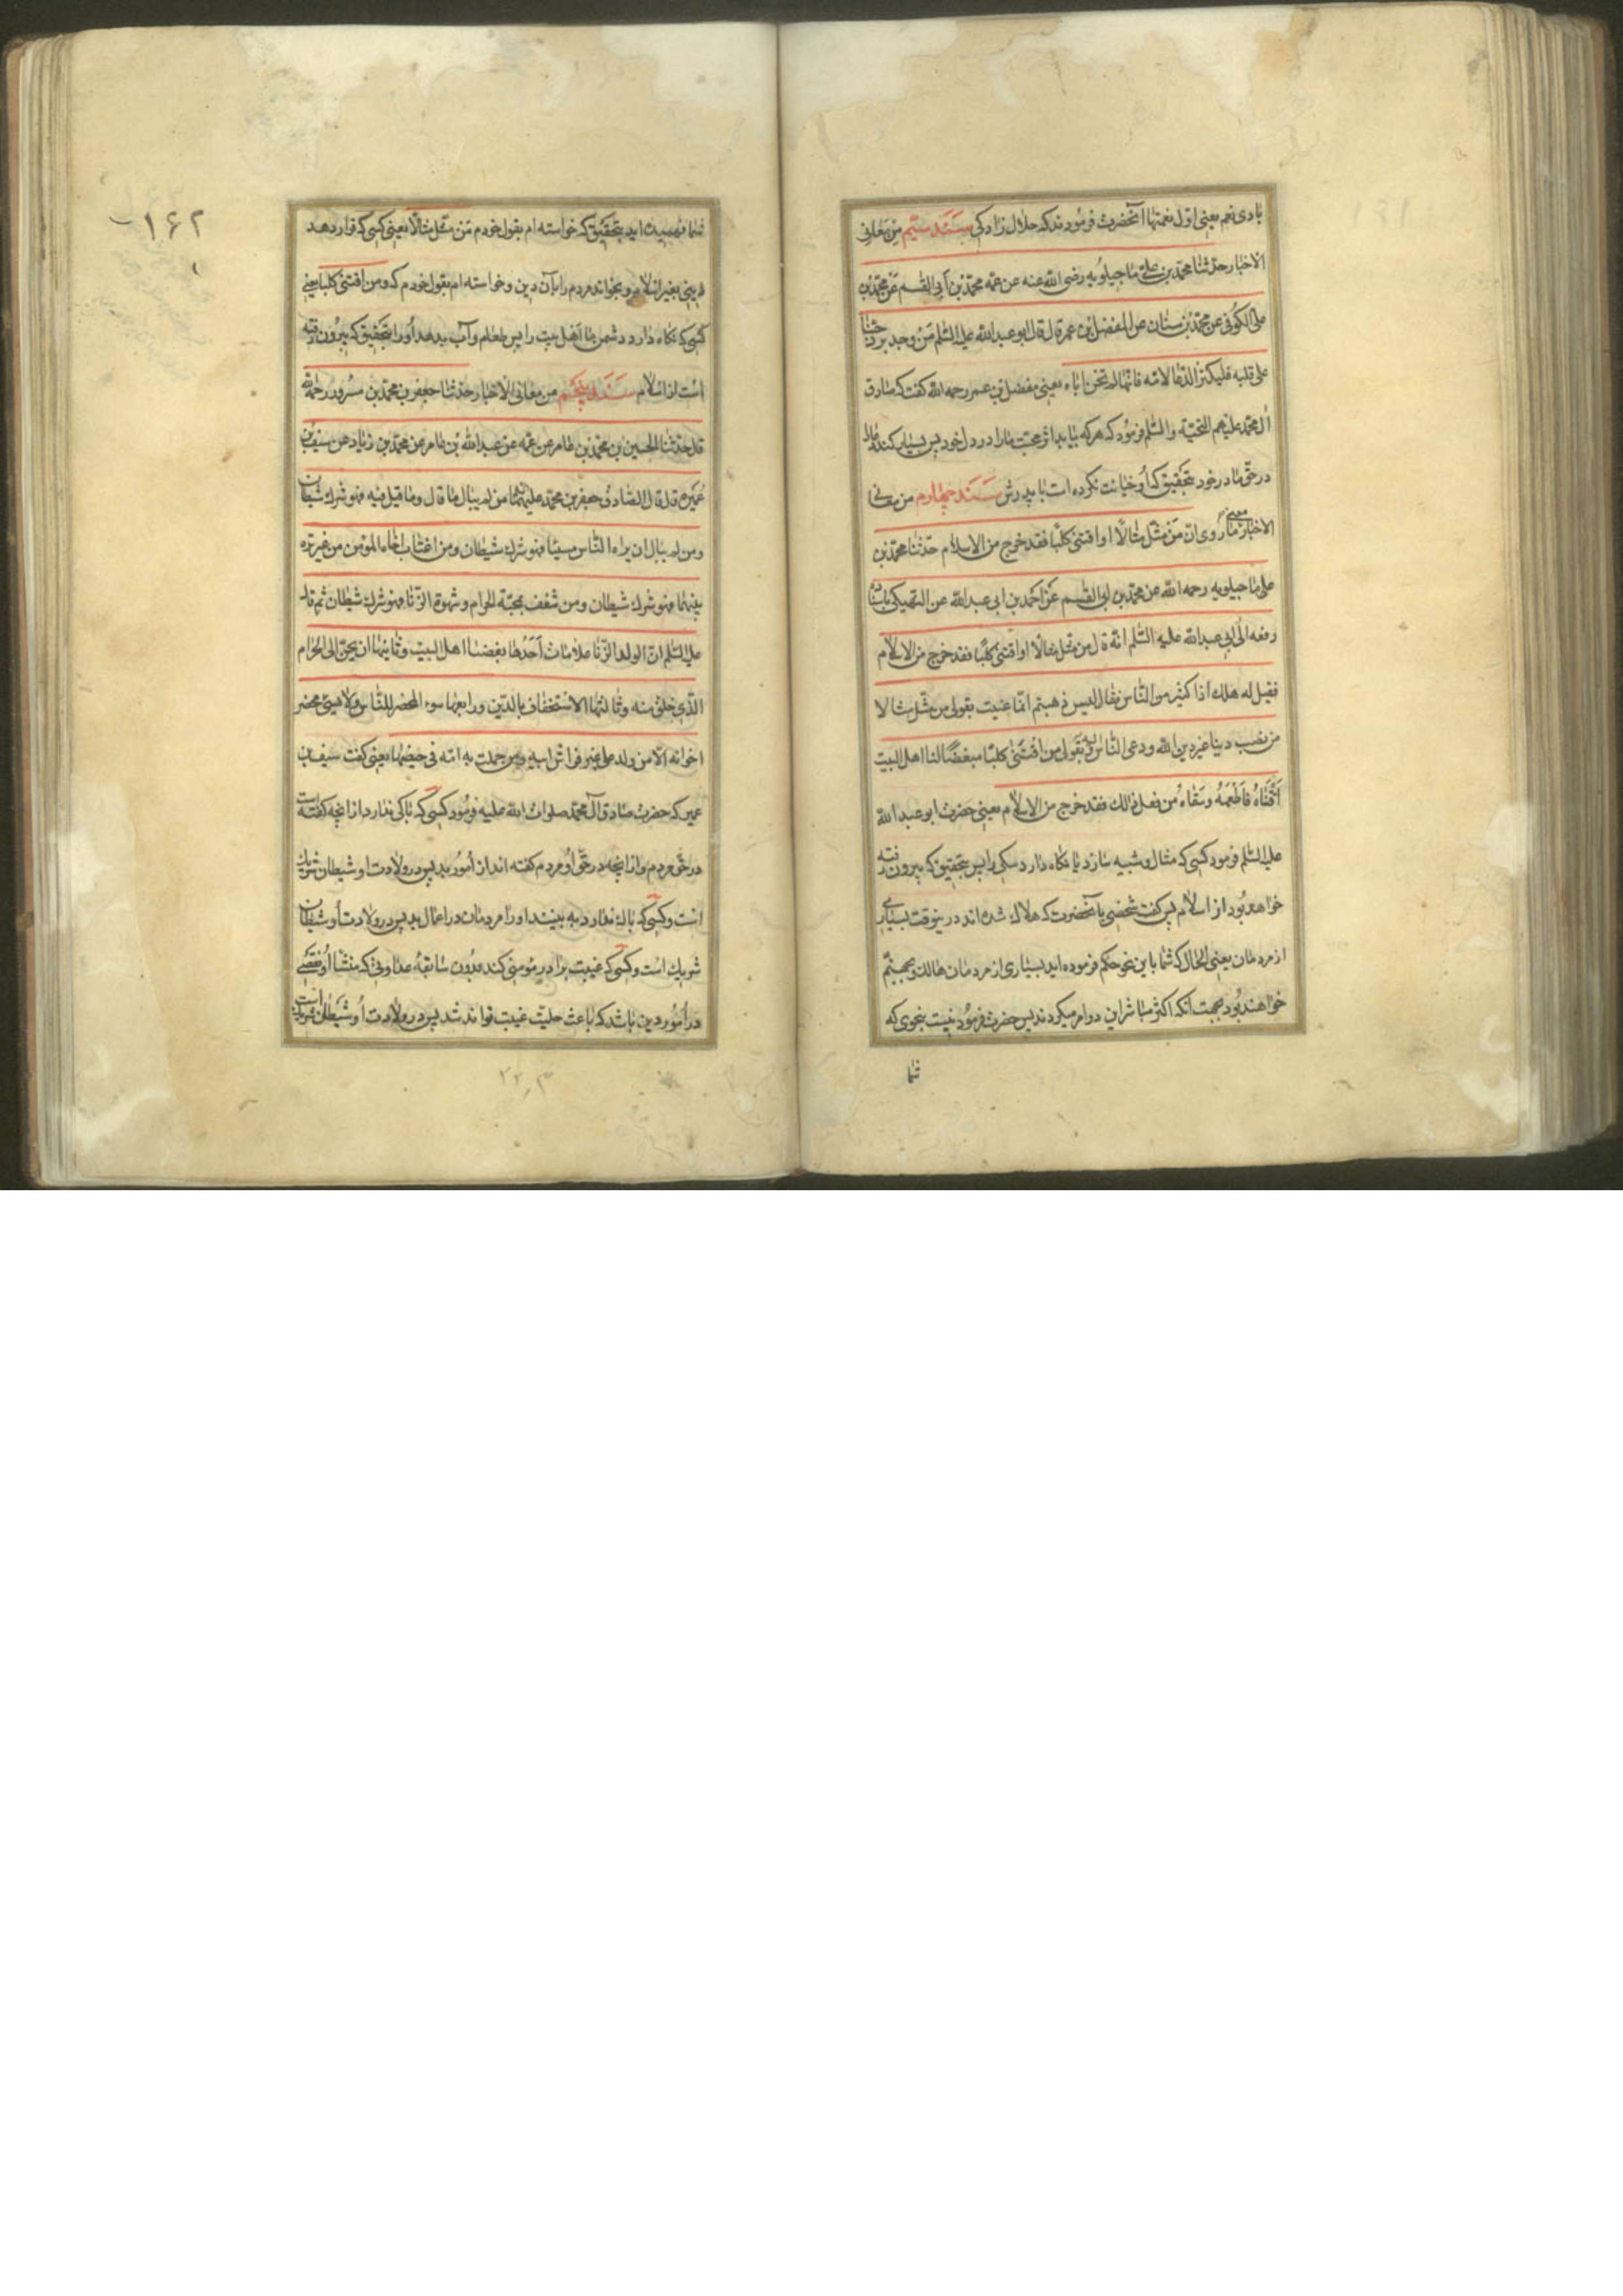 بادی نعم یعنی اول نعمتها آنحضرت فرمودند که حلال زادکی سند سیم من معانی
الاخبار حدثنا محمد بن علی ماجیلویه رضی الله عنه عن عمه محمد بن ابی القسم عن محمد بن
علی الکوفی عن محمد بن سنان عن المفضل بن عمر قال قال ابو عبد الله علیه السلم من وجد برد حبنا
علی قلبه فلیکثر الدعا لامه فانها لم تخن اباه یعنی مفضل بن عمر رحمه الله کفت که صادق
آل محمد علیهم التحیة والسلم فرمود که هرکه بیابد اثر محبت ما را در دل خود پس بسیار کند دعا
در حق مادر خود بتحقیق که او خیانت نکرده است با پدرش سند چهارم من معانی
الاخبار معنی ما روی ان من مثل مثالا او اقتنی کلبا فقد خرج من الاسلام حدثنا محمد بن
علی ماجیلویه رحمه الله عن محمد بن ابی القسم عن احمد بن ابی عبد الله عن النهیکی باسناده
رفعه الی ابی عبد الله علیه السلم انه قال من مثل مثالا او اقتنی کلبا فقد خرج من الاسلام
فقیل له هلك اذا کثیر من الناس فقال لیس ذهبتم انما عنیت بقولی من مثل مثالا
من نصب دینا غیر دین الله ودعی الناس الیه وبقولی من اقتنی کلبا مبغضا لنا اهل البیت
اقتناه فاطعمه وسقاه من فعل ذالك فقد خرج من الاسلام یعنی حضرت ابو عبد الله
علیه السلم فرمود کسی که مثال و شبیه سازد یا نکاه دارد سکی را پس بتحقیق که بیرون رفته
خواهد بود از اسلام پس کفت شخصی بآنحضرت که هلاك شده اند درینوقت بسیاری
از مردمان یعنی الحال که شما باین نحو حکم فرموده اید بسیاری از مردمان هالك و بجهنم
خواهند بود بجهت آنکه اکثر مباشر این دو امر میکردند پس حضرت فرمود نیست بنحوی که
شما
۱۶۲
شما فهمیده اید بتحقیق که خواسته ام بقول خودم من مثل مثالا یعنی کسی که قرار دهد
دینی بغیر اسلام و بخواند مردم را بآن دین و خواسته ام بقول خودم که و من اقتنی کلبا یعنی
کسی که نکاه دارد دشمن ما اهل بیت را پس طعام و آب بدهد او را بتحقیق که بیرون رفته
است از اسلام سند پنجم من معانی الاخبار حدثنا جعفر بن محمد بن مسرور رحمه الله
قال حدثنا الحسین بن محمد بن عامر عن عمه عن عبد الله بن عامر عن محمد بن زیاد عن سیف بن
عمیره قال قال الصادق جعفر بن محمد علیهما من لم یبال ما قال وما قیل فیه فهو شرك شیطان
ومن لم یبال ان یراه الناس مسیئا فهو شرك شیطان ومن اغتاب اخاه المؤمن من غیر تره
بینهما فهو شرك شیطان ومن شغف بمحبة الحرام وشهوة الزنا فهو شرك شیطان ثم قال
علیه السلم ان لولد الزنا علامات احدها بغضنا اهل البیت وثانیها ان یحن الی الحرام
الذی خلق منه وثالثها الاستخفاف بالدین ورابعها سوء المحضر للناس ولا یسیئ محضر
اخوانه الا من ولد علی غیر فراش ابیه ومن حملت به امه فی حیضها یعنی کفت سیف بن
عمیر که حضرت صادق آل محمد صلوات الله علیه فرمود کسی که باکی ندارد از انچه کفته است
در حق مردم و از انچه در حق او مردم کفته اند از امور بد پس در ولادت او شیطان شریك
است و کسی که باك ندارد به بینند او را مردمان در اعمال بد پس در ولادت او شیطان
شریك است و کسی که غیبت برادر مومنی کند بدون سابقه عداوتی که منشا او نقصی
در امور دین باشد که باعث حلیت غیبت تواند شد پس در ولادت او شیطان شریك است